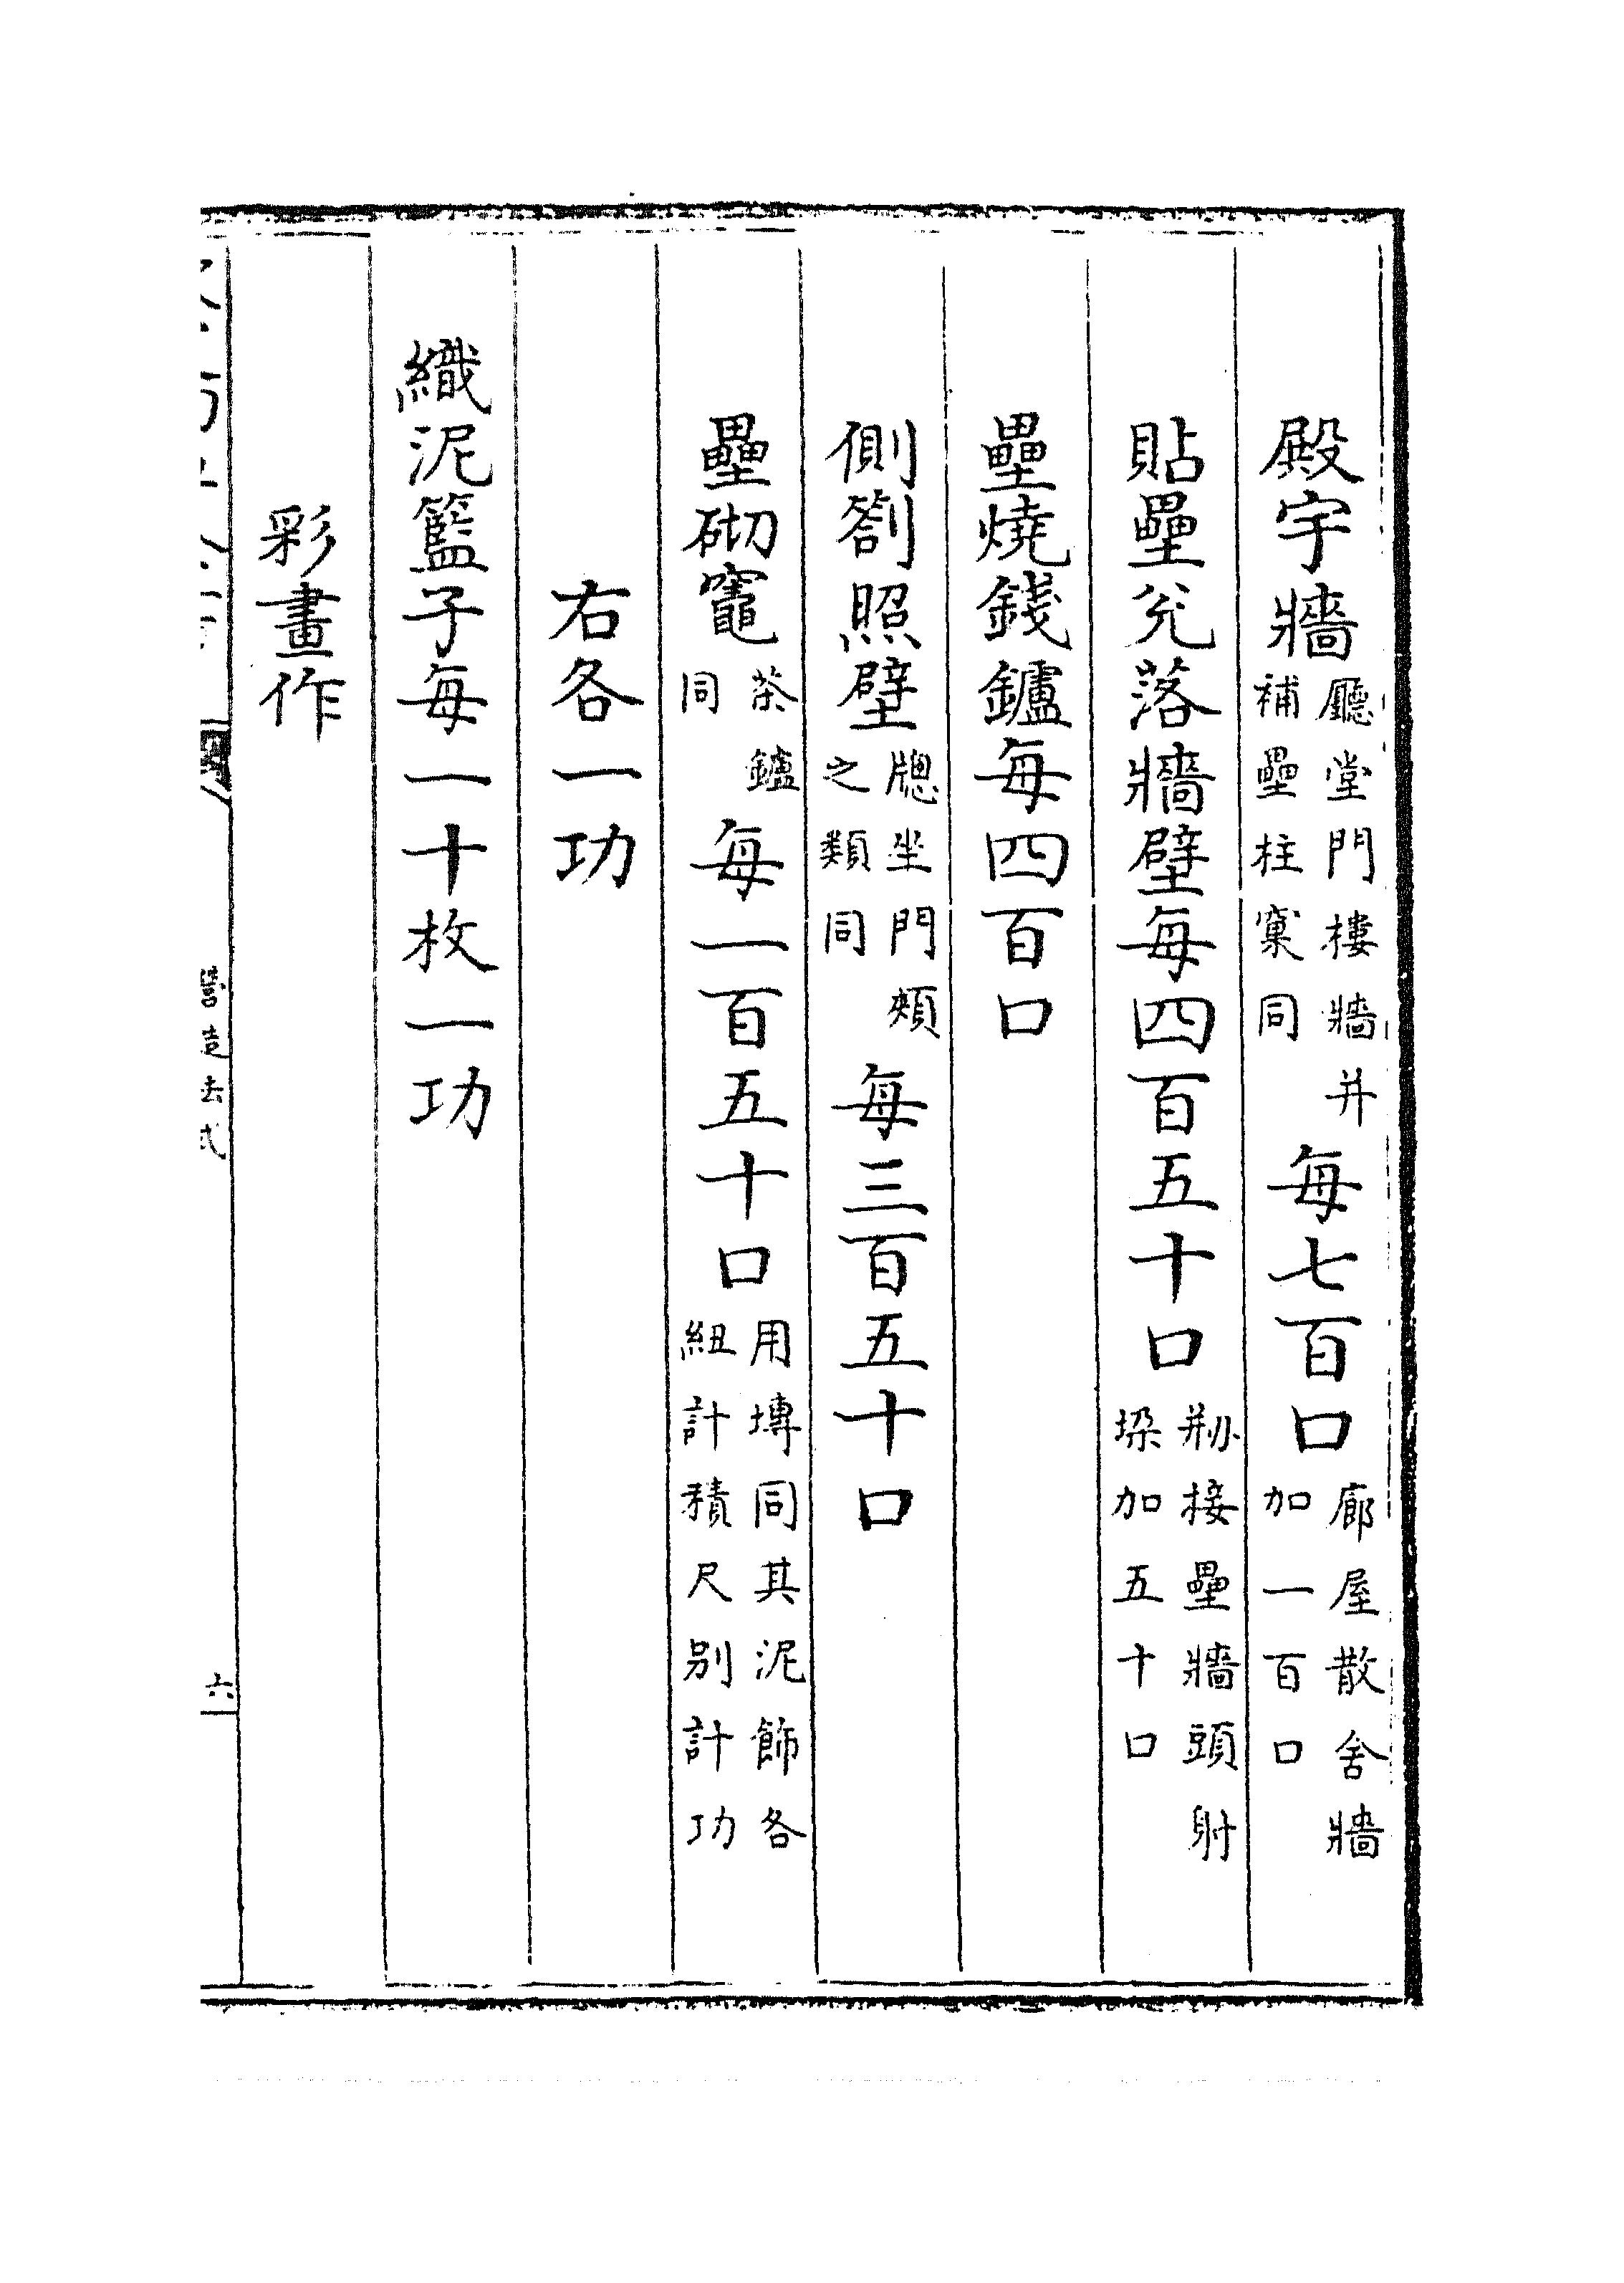 殿宇牆廳堂門樓牆并補壘柱窠同每七百口廊屋散舍牆加一百口
貼壘兊落牆壁每四百五十口剏接壘牆頭射垜加五十口
壘燒錢鑪每四百口
側劄照壁牕坐門頰之類同每三百五十口
壘砌竈茶鑪同每一百五十口用塼同其泥飾各紐計積尺别計功
右各一功
織泥籃子每一十枚一功
彩畫作
營造法式
六